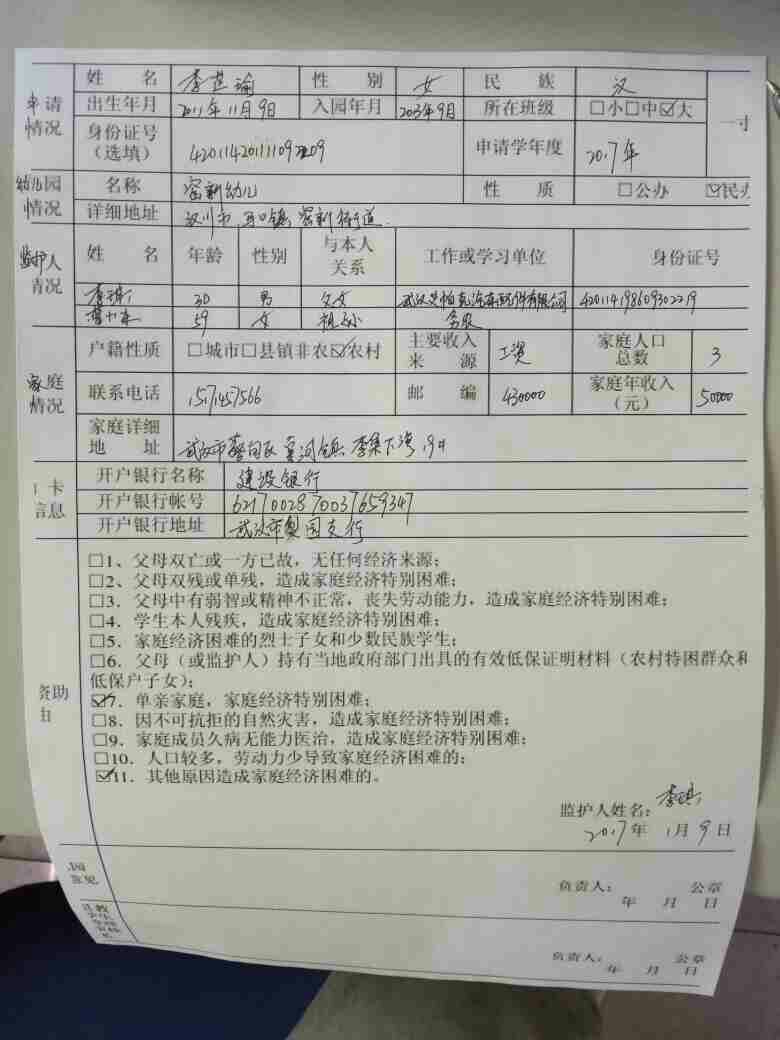 姓 名 李芷瑜 性 别 女 民 族 汉
申请 出生年月 2011年11月9日 入园年月 2015年9月 所在班级 □小□中☑大 一寸
情况 身份证号
（选填） 申请学年度 2017年
幼儿园 名称 窑新幼儿 性 质 □公办 ☑民办
情况 详细地址 汉川市 马口镇 窑新街道
监护人 姓 名 年龄 性别 与本人
关系 工作或学习单位 身份证号
情况
30 男 父女 420114198609302219
59 女 祖孙 务农
户籍性质 □城市□县镇非农☑农村 主要收入
来 源 工资 家庭人口
总数 3
家庭 联系电话 邮 编 430000 家庭年收入
（元） 50000
情况
家庭详细
地 址 武汉市
卡 开户银行名称 建设银行
信息 开户银行帐号 6217002870037659347
开户银行地址 武汉市梨园支行
□1、父母双亡或一方已故，无任何经济来源；
□2．父母双残或单残，造成家庭经济特别困难；
□3．父母中有弱智或精神不正常，丧失劳动能力，造成家庭经济特别困难；
□4．学生本人残疾，造成家庭经济特别困难；
□5．家庭经济困难的烈士子女和少数民族学生；
□6．父母（或监护人）持有当地政府部门出具的有效低保证明材料（农村特困群众和
低保户子女）；
资助 ☑7．单亲家庭，家庭经济特别困难；
由 □8．因不可抗拒的自然灾害，造成家庭经济特别困难；
□9．家庭成员久病无能力医治，造成家庭经济特别困难；
□10．人口较多，劳动力少导致家庭经济困难的；
☑11．其他原因造成家庭经济困难的。
监护人姓名：
2017年 1月 9日
园
意见 负责人： 公章
年 月 日
负责人： 公章
年 月 日